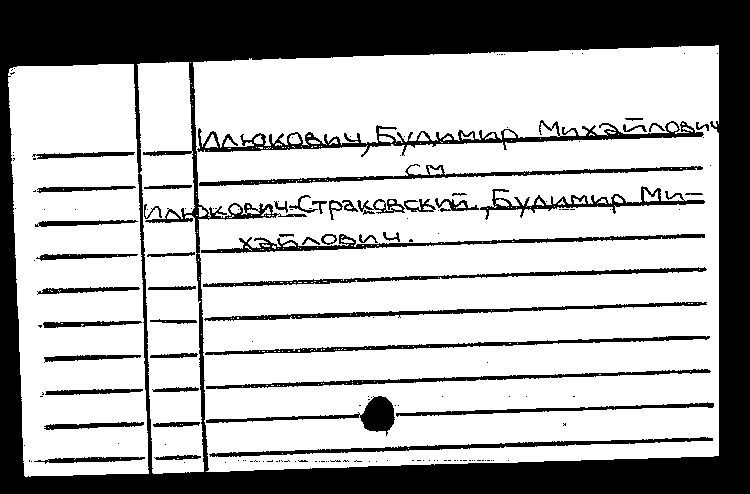 Илюкович, Будимир Михайлович
см
Илюкович-Страковский, Будимир Ми-
хайлович.